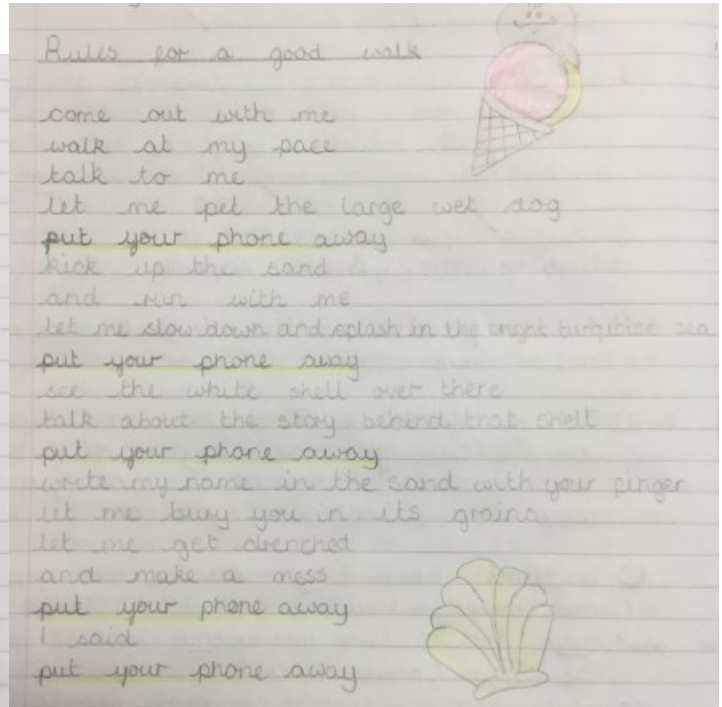 Rules for a good walk
come out with me
walk at my pace
talk to me
let me pet the large wet dog
put your phone away
kick up the sand
and run with me
let me slow down and splash in the bright turquoise sea
put your phone away
see the white shell over there
talk about the story behind that shell
put your phone away
write my name in the sand with your finger
let me bury you in its grains
let me get drenched
and make a mess
put your phone away
I said
put your phone away